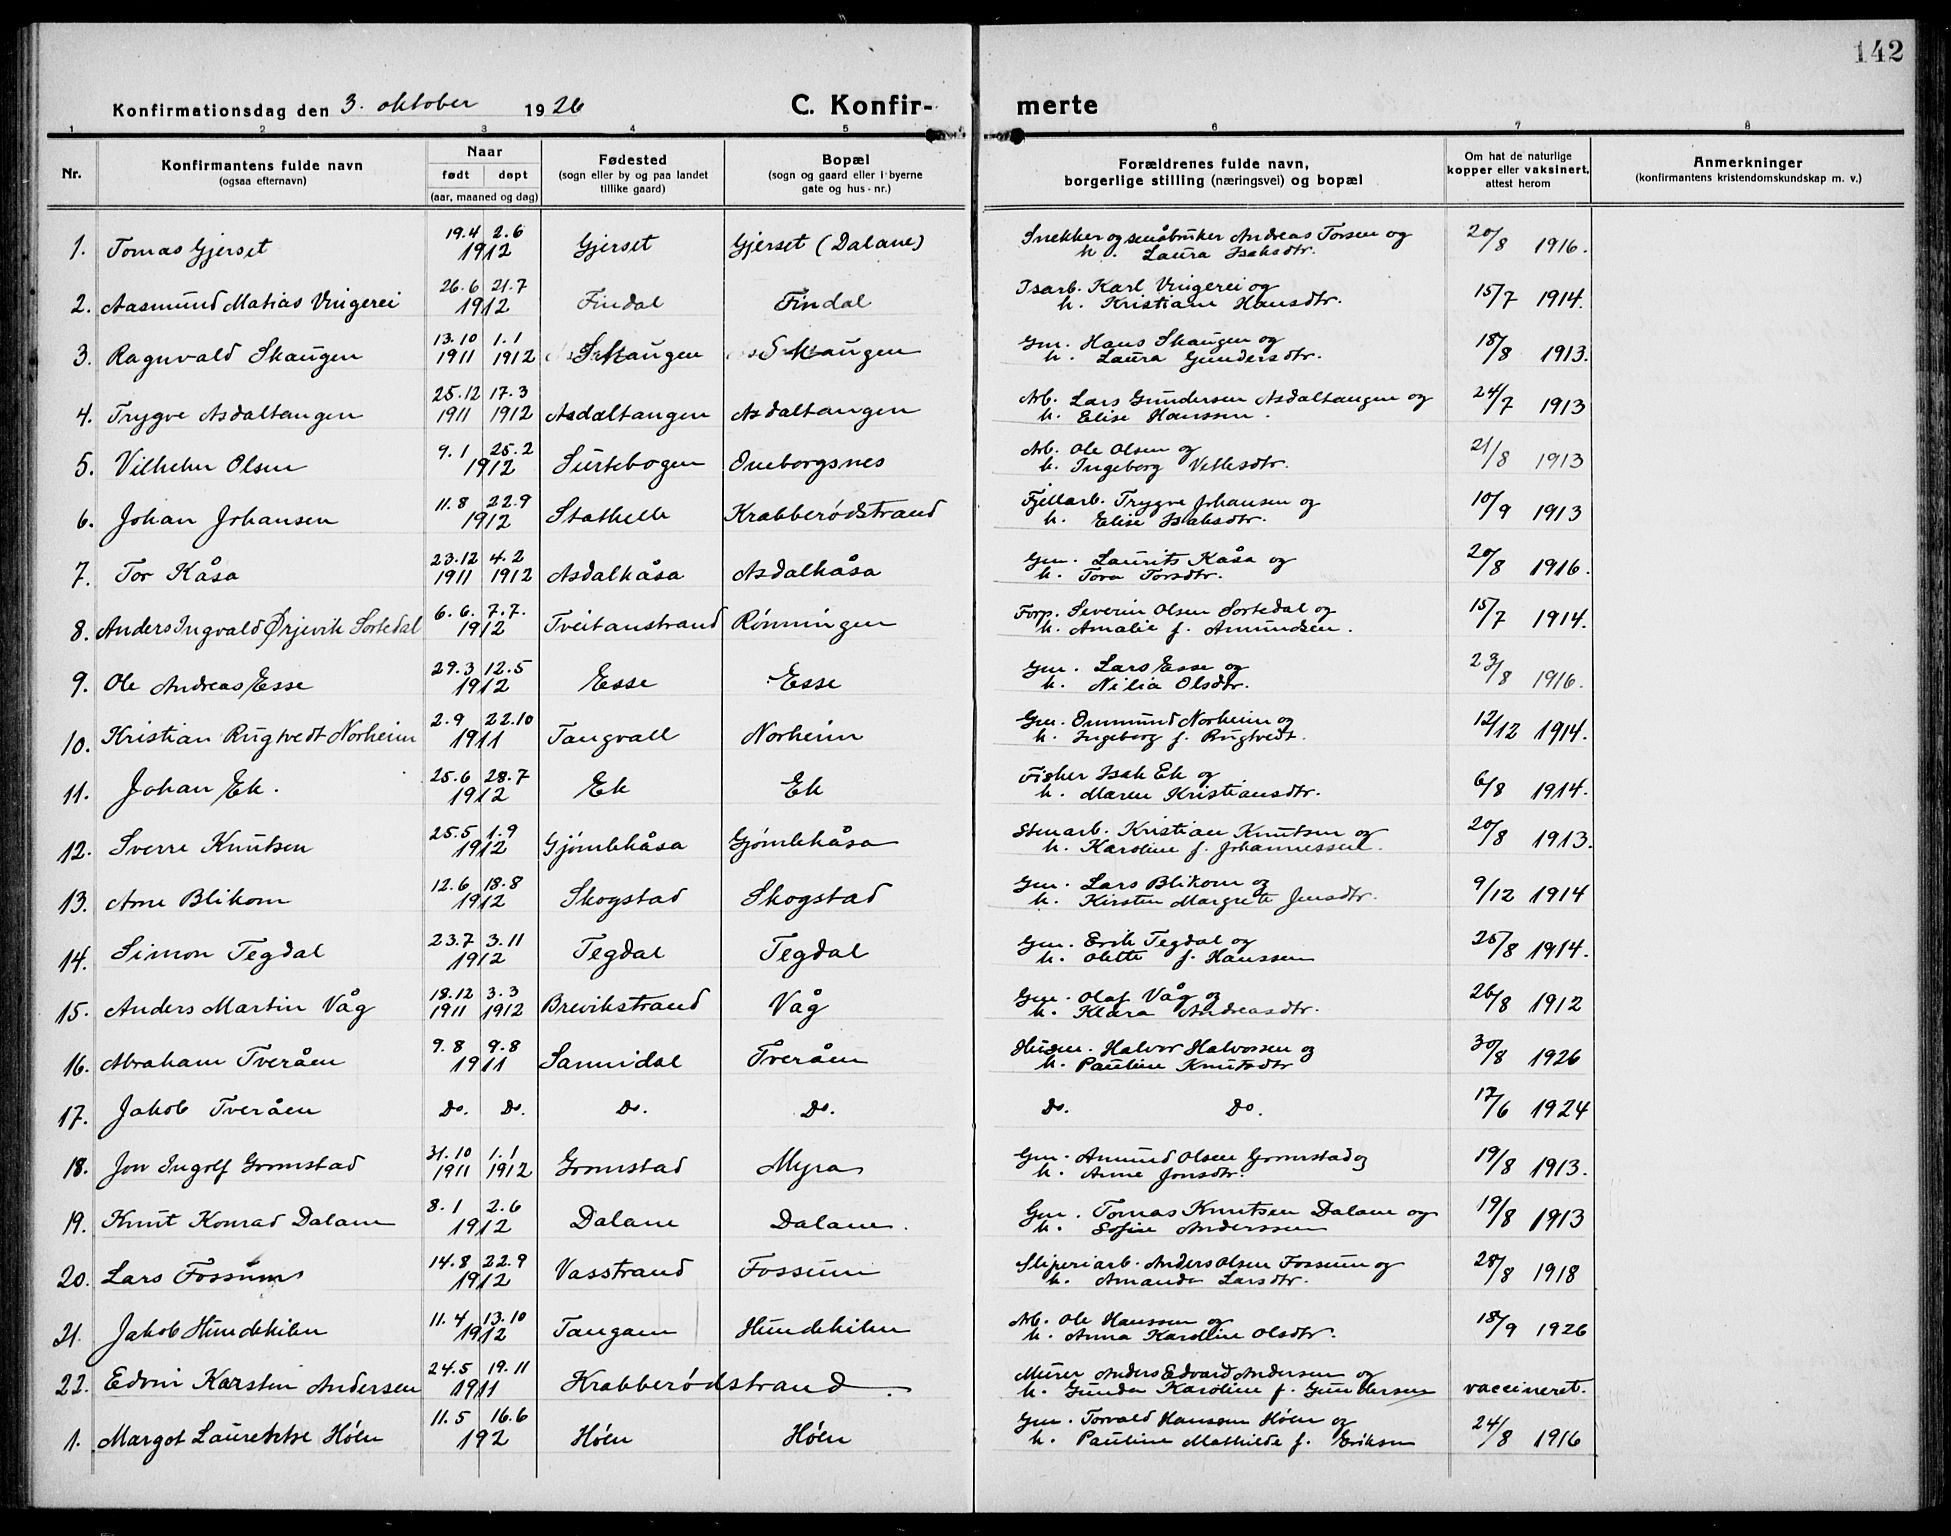 142
Konfirmationsdag den 3. oktober 1926 C. Konfir- merte
1 2 3 4 5 6 7 8
Nr. Konfirmantens fulde navn (ogsaa efternavn) Naar født døpt (aar, maaned og dag) Fødested (sogn eller by og paa landet tillike gaard) Bopæl (sogn og gaard eller i byerne gate og hus-nr.) Forældrenes fulde navn, borgerlige stilling (næringsvei) og bopæl Om hat de naturlige kopper eller vaksinert, attest herom Anmerkninger (konfirmantens kristendomskundskap m. v.)
1. Tomas Gjerset 19.4 2.6 1912 Gjerset Gjerset (Dalane) Snekker og småbruker Andreas Torsen og h. Laura Isaksdtr. 20/8 1916.
2. Aasmund Matias Vingerei 26.6 21.7 1912 Findal Findal Isarb. Karl Vingerei og h. Kristiane Hansdtr. 15/7 1914.
3. Ragnvald Skaugen 13.10 1911 1.1 1912 Skaugen Skaugen Gm. Hans Skaugen og h. Laura Gundersdtr. 18/8 1913.
4. Trygve Asdaltangen 25.12 1911 17.3 1912 Asdaltangen Asdaltangen Arb. Lars Gundersen Asdaltangen og h. Elise Hanssen. 24/7 1913
5. Vilhelm Olsen 9.1 25.2 1912 Surtebogen Oneborgsnes Arb. Ole Olsen og h. Ingeborg Vetlesdtr. 21/8 1913
6. Johan Johansen 11.8 22.9 1912 Stathelle Krabberødstrand Fjellarb. Trygve Johansen og h. Elise Isaksdtr. 10/9 1913
7. Tor Kåsa 23.12 1911 4.2 1912 Asdalkåsa Asdalkåsa Gm. Laurits Kåsa og h. Tora Torsdtr. 20/8 1916.
8. Anders Ingvald Ørjevik Sortedal 6.6. 7.7. 1912 Tveitanstrand Rønningen Forp. Severin Olsen Sortedal og h. Amalie f. Amundsen. 15/7 1914.
9. Ole Andreas Esse 29.3 12.5 1912 Esse Esse Gm. Lars Esse og h. Nilia Olsdtr. 23/8 1916.
10. Kristian Rugtvedt Norheim 2.9 22.10 1911 Tangvall Norheim Gm. Ommund Norheim og h. Ingeborg f. Rugtvedt. 12/12 1914.
11. Johan Ek. 25.6 28.7 1912 Ek Ek Fisker Isak Ek og h. Maren Kristiansdtr. 6/8 1914.
12. Sverre Knutsen 25.5 1.9 1912 Gjømlekåsa Gjømlekåsa Stenarb. Kristian Knutsen og h. Karoline f. Johannessen. 20/8 1913.
13. Arne Blikom 12.6 18.8 1912 Skogstad Skogstad Gm. Lars Blikom og h. Kirsten Margrete Jensdtr. 9/12 1914
14. Simon Tegdal 23.7 3.11 1912 Tegdal Tegdal Gm. Erik Tegdal og h. Olette f. Hanssen 25/8 1914.
15. Anders Martin Våg 18.12 1911 3.3 1912 Brevikstrand Våg Gm. Olaf Våg og h. Klara Andreasdtr. 26/8 1912
16. Abraham Tveråen 9.8 9.8 1911 Sannidal Tveråen Husm. Halvor Halvorsen og h. Pauline Knutsdtr 30/8 1926
17. Jakob Tveråen Do. Do. Do. Do. Do. Do. 17/6 1924
18. Jon Ingolf Gromstad 31.10 1911 1.1 1912 Gromstad Myra Gm. Amund Olsen Gromstad og h. Anne Jonsdtr. 19/8 1913.
19. Knut Konrad Dalane 8.1 2.6 1912 Dalane Dalane. Gm. Tomas Knutsen Dalane og h. Sofie Anderssen 19/8 1913
20. Lars Fossum 14.8 22.9 1912 Vasstrand Fossum Sliperiarb. Anders Olsen Fossum og h. Amanda Larsdtr. 28/8 1918
21. Jakob Hundekilen 11.4 13.10 1912 Tangane Hundekilen Arb. Ole Hanssen og h. Anna Karoline Olsdtr. 18/9 1926
22. Edvin Karstin Andersen 24.5 19.11 1911 Krabberødstrand. Murer Anders Edvard Andersen og h. Gunda Karoline f. Gundersen vaccineret.
1. Margot Laurentse Høen 11.5 16.6 192 Høen Høen Gm. Torvald Hanssen Høen og h. Pauline Mathilde f. Eriksen 24/8 1916